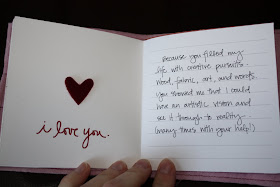 i love you.
Because you filled my
life with creative pursuits.
Wood, fabric, art, and words.
You showed me that I could
have an artistic vision and
see it through to reality
(many times with your help!)